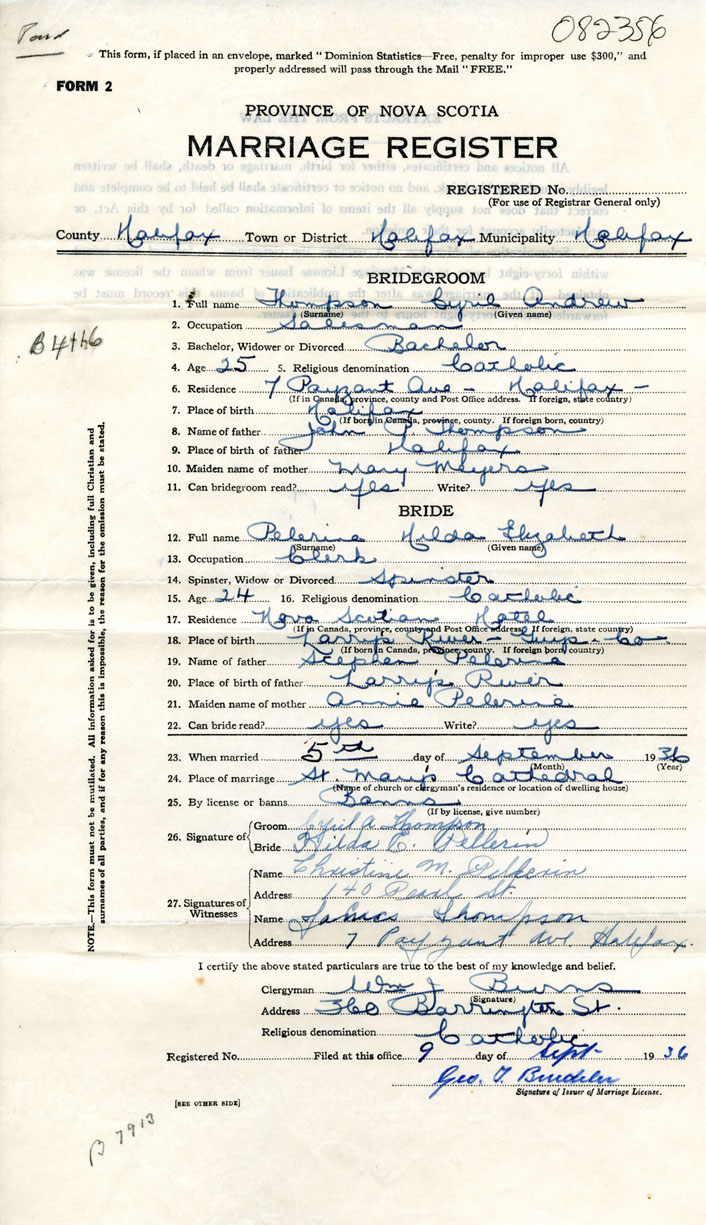 082356
This form, if placed in an envelope, marked "Dominion Statistics—Free, penalty for improper use $300," and
properly addressed will pass through the Mail "FREE."
FORM 2
PROVINCE OF NOVA SCOTIA
MARRIAGE REGISTER
REGISTERED No.
(For use of Registrar General only)
County Halifax Town or District Halifax Municipality Halifax
BRIDEGROOM
1. Full name Thompson Cyril Andrew
(Surname) (Given name)
2. Occupation Salesman
B4446
3. Bachelor, Widower or Divorced Bachelor
4. Age 25 5. Religious denomination Catholic
6. Residence 7 Payzant Ave - Halifax -
(If in Canada, province, county and Post Office address. If foreign, state country)
7. Place of birth Halifax
(If born in Canada, province, county. If foreign born, country)
8. Name of father John Thompson
9. Place of birth of father Halifax
10. Maiden name of mother Mary Meyers
11. Can bridegroom read? yes Write? yes
BRIDE
12. Full name Pelerine Hilda Elizabeth
(Surname) (Given name)
13. Occupation Clerk
14. Spinster, Widow or Divorced Spinster
15. Age 24 16. Religious denomination Catholic
17. Residence Nova Scotian Hotel
(If in Canada, province, county and Post Office address. If foreign, state country)
18. Place of birth Larry's River - Guys. Co.
(If born in Canada, province, county. If foreign born, country)
19. Name of father Stephen Pelerine
20. Place of birth of father Larry's River
21. Maiden name of mother Annie Pelerine
22. Can bride read? yes Write? yes
23. When married 5th day of September 1936
(Month) (Year)
24. Place of marriage St. Mary's Cathedral
(Name of church or clergyman's residence or location of dwelling house)
25. By license or banns Banns
(If by license, give number)
26. Signature of
Groom Cyril A Thompson
Bride Hilda E. Pellerin
27. Signatures of Witnesses
Name Christine M. Pellerin
Address 140 Pearl St.
Name James Thompson
Address 7 Payzant Ave Halifax.
NOTE.—This form must not be mutilated. All information asked for is to be given, including full Christian and
surnames of all parties, and if for any reason this is impossible, the reason for the omission must be stated.
I certify the above stated particulars are true to the best of my knowledge and belief.
Clergyman Wm J Burns
(Signature)
Address 360 Barrington St.
Religious denomination Catholic
Registered No. Filed at this office 9 day of Sept 1936
Geo. T.
Signature of Issuer of Marriage License.
[SEE OTHER SIDE]
B 7913